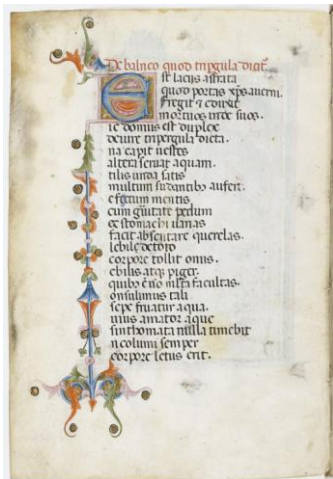 De balneo quod tripgula dicit᷑.
Est lacus astrata
quo portas xp̄s averni.
Fregit ⁊ eduxit
mortuos inde suos.
ec domus est duplex
de iure tripergula dicta.
na capit uestes
altera seruat aquam.
tilis unda satis
multum sudantibus aufert.
efectum mentis
cum grauitate pedum
ec stomachi uarias
facit absentare querelas.
lebile de toto
corpore tollit onus.
ebilis atq; piger.
quibꝰ ē nō facultas.
onsulimus tali
sepe fruatur aqua.
uius amator aque
sinthomata nulla timebit
ncolumi semper
corpore letus erit.